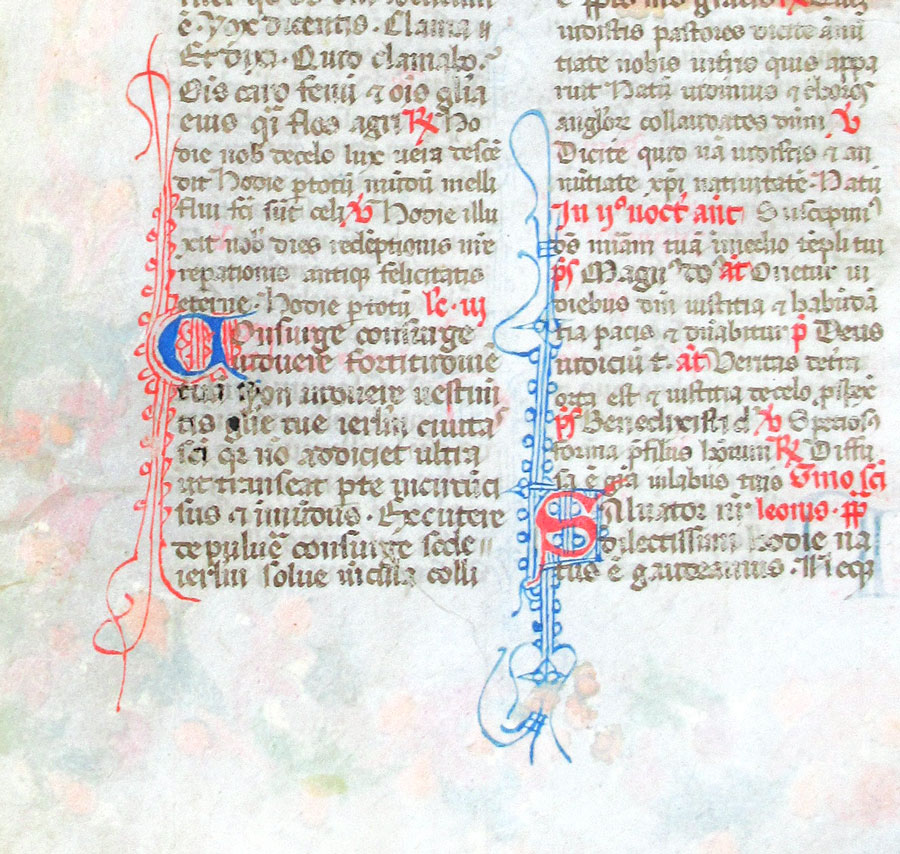 é. Vox dicentis. Clama
Et dixi. Quid clamabo.
Ois caro fenũ ⁊ oís glía
eius qí flos agri ℟ Ho
die nob̃ de celo lux vera descẽ
dit Hodie p totũ mũdũ melli
flui fcĩ sũt celi ℣ Hodie illu
xit nob̃ dies redẽptionis nr̃e
repationis antiq̃ felicitatis
eterne. Hodie p totũ lc̃. iij
Onsurge consurge
induere fortitudinẽ
tuã syon induere vestimẽ
tis gl̃ie tue ierl̃m civita
sc̃i qr nõ adiciet ultra
ut transeat p te incircũci
sus ⁊ ĩmũdus. Excutere
de puluẽ consurge sede
ierl̃m solue vĩcula colli
vidistis pastores dicite ãnũ
tiate nobis in t̃ris quis appa
ruit Natũ vidimus ⁊ choros
angl̃oꝝ collaudãtes dñm ℣
Dicite quid nã vidistis ⁊ an
nũtiate xp̃i nativitatẽ. Natũ
In ij° noct̃ ant̃ Suscepim⁹
d̃s miãm tuã ĩ medio tẽpli tui
p̃s Magn⁹ do⁹ añt Orietur in
diebus dñi iustitia ⁊ habũdã
tia pacis ⁊ dñabitur p̃ Deus
iudiciũ t. añt Veritas de t̃ra
orta est ⁊ iustitia de celo p̃spex̃
p̃s Benedixisti d̃ ℣ Speciosus
forma p̃ filiis hõinum ℟ Diffu
sa ẽ gr̃a in labiis tuis Smo sc̃i
Saluator nr̃ leonis. pp̃
dilectissimi hodie na
tus ẽ gaudeamus.